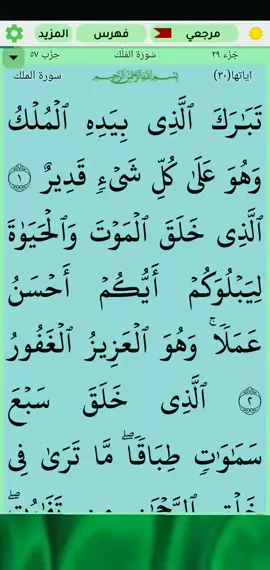 مرجعي فهرس المزيد
جزء ٢٩ سورة الملك حزب ٥٧
اياتها(٣٠) بِسْمِ اللَّهِ الرَّحْمَٰنِ الرَّحِيمِ سورة الملك
تَبَٰرَكَ ٱلَّذِى بِيَدِهِ ٱلْمُلْكُ
وَهُوَ عَلَىٰ كُلِّ شَىْءٍۢ قَدِيرٌ ١
ٱلَّذِى خَلَقَ ٱلْمَوْتَ وَٱلْحَيَوٰةَ
لِيَبْلُوَكُمْ أَيُّكُمْ أَحْسَنُ
عَمَلًۭا ۚ وَهُوَ ٱلْعَزِيزُ ٱلْغَفُورُ
٢ ٱلَّذِى خَلَقَ سَبْعَ
سَمَٰوَٰتٍۢ طِبَاقًۭا ۖ مَّا تَرَىٰ فِى
خَلْقِ ٱلرَّحْمَٰنِ مِن تَفَٰوُتٍۢ ۖ